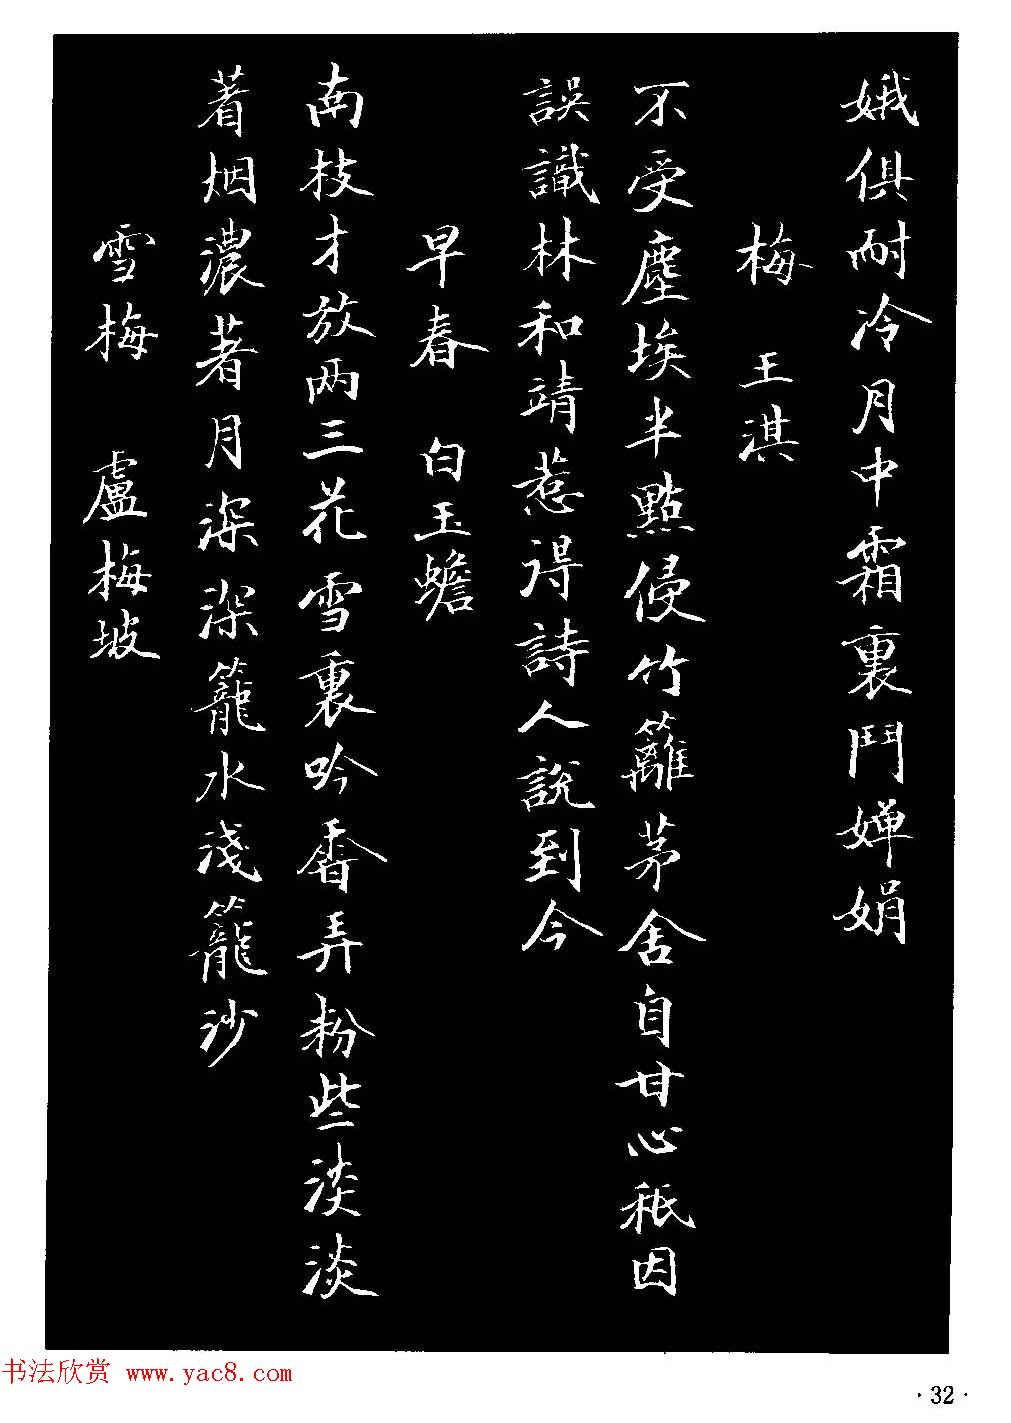 娥俱耐冷月中霜裏鬥嬋娟
梅 王淇
不受塵埃半點侵竹籬茅舍自甘心秖因
誤識林和靖惹得詩人說到今
早春 白玉蟾
南枝才放两三花雪裏吟香弄粉些淡淡
著烟濃著月深深籠水淺籠沙
雪梅 盧梅坡
书法欣赏 www.yac8.com
·32·